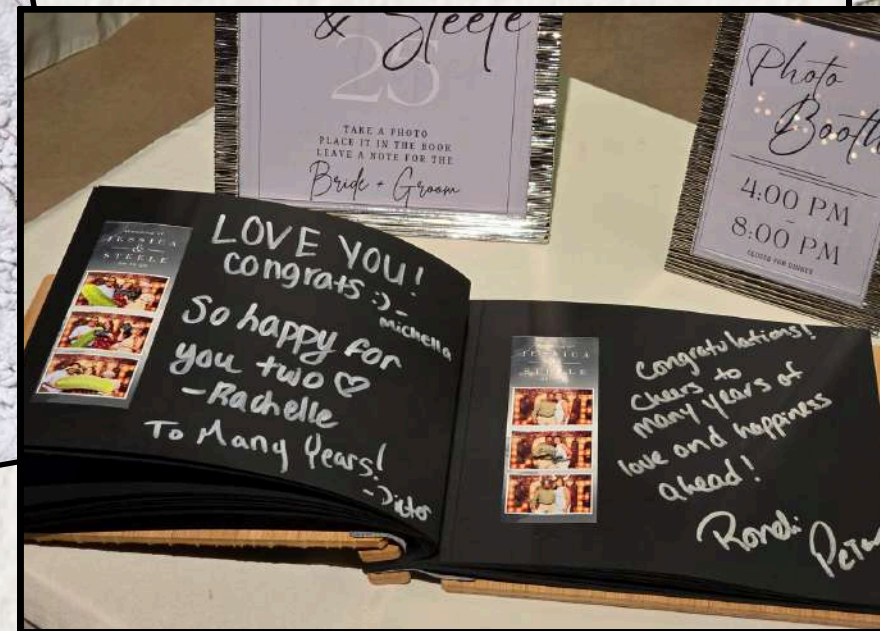 & Steele
25
TAKE A PHOTO
PLACE IT IN THE BOOK
LEAVE A NOTE FOR THE
Bride + Groom
Photo
Booth
4:00 PM
-
8:00 PM
CLOSED FOR DINNER
JESSICA
&
STEELE
LOVE YOU!
congrats :)-
Michella
So happy for
you two ♡
-Rachelle
To Many Years!
JESSICA
&
STEELE
Congratulations!
Cheers to
many years of
love and happiness
ahead!